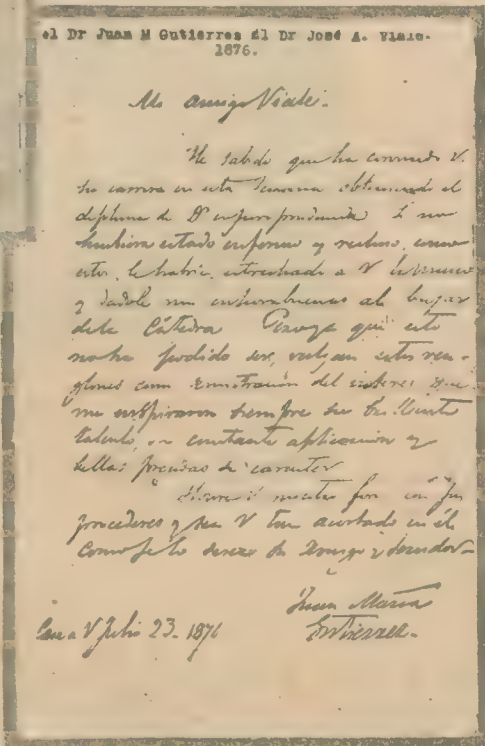 el Dr Juan M Gutierres al Dr José A. Viale.
1876.
Mi amigo Viale.
He sabido que ha coronado V.
su carrera en esta semana obteniendo el
diploma de Dr en jurisprudencia Si no
hubiera estado enfermo y recluso, como
estoy, le habria estrechado a V la mano
y dadole mi enhorabuena al bajar
de la Cátedra Ya que esto
no ha podido ser, valgan estos ren-
glones como demostracion del interes que
me inspiraron siempre su brillante
talento, su constante aplicacion y
bellas prendas de caracter
Honre V nuestro foro con sus
procederes y sea V tan acertado en él
como se lo desea su amigo y servidor
Juan María
Gutierrez.
Casa a V Julio 23. 1876